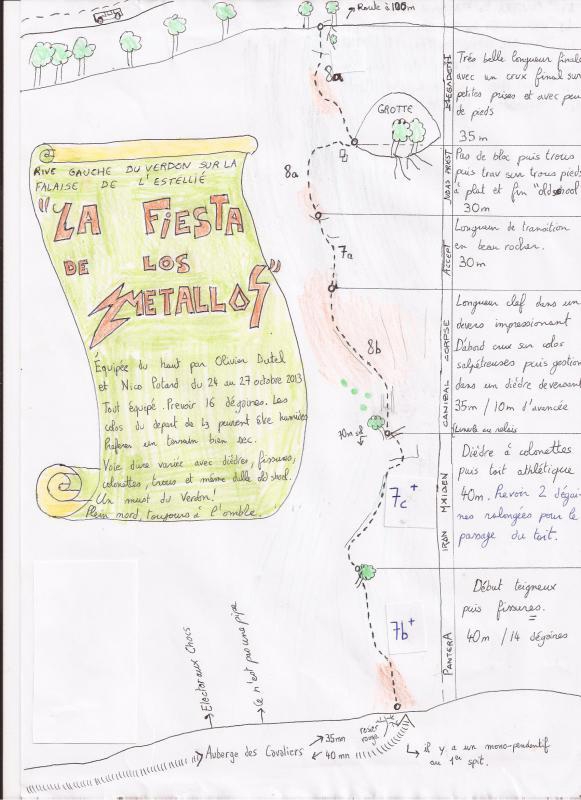 Route à 100m
8a
GROTTE
8a
7a
8b
70m sol
7c+
7b+
RIVE GAUCHE DU VERDON SUR LA
FALAISE DE L'ESTELLIÉ
"LA FIESTA
DE LOS
METALLOS"
Équipée du haut par Olivier Dutel
et Nico Potard du 24 au 27 octobre 2013
Tout équipé. Prévoir 16 dégaines. Les
colos du départ de L3 peuvent être humides
Préférer un terrain bien sec.
Voie dure variée avec dièdres, fissures,
colonettes, trous et même dalle old shool.
Un must du Verdon!
Plein nord, toujours à l'ombre.
MEGADETH
Très belle longueur finale
avec un crux final sur
petites prises et avec peu
de pieds
35m
JUDAS PRIEST
Pas de bloc puis trous
puis trav sur trous pieds
à plat et fin "old shool
30m
ACCEPT
Longueur de transition
en beau rocher.
30m
CANIBAL CORPSE
Longueur clef dans un
devers impressionant
D'abord crux sur colos
salpêtreuses puis gestion
dans un dièdre deversant
35m / 10m d'avancée
au relais
IRON MAIDEN
Dièdre à colonettes
puis toit athlétique
40m. Prevoir 2 dégai-
nes ralongées pour le
passage du toit.
PANTERA
Début teigneux
puis fissures.
40m / 14 dégaines
Electoraux Chocs
Ce n'est pas une pipe
Auberge des Cavaliers
35mn
40mn
rouge
il y a un mono-pendentif
au 1er spit.